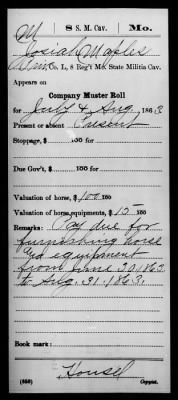 M 8 S. M. Cav. Mo.
Josiah Maples
Co. L, 8 Reg't Mo. State Militia Cav.
Appears on
Company Muster Roll
for July & Aug, 1863
Present or absent Present
Stoppage, $ 100 for
Due Gov't, $ 100 for
Valuation of horse, $ 100 100
Valuation of horse equipments, $ 15 100
Remarks: Pay due for
furnishing horse
and equipment
from June 30, 1863
to Aug. 31. 1863.
Book mark:
Housel
(858) Copyist.